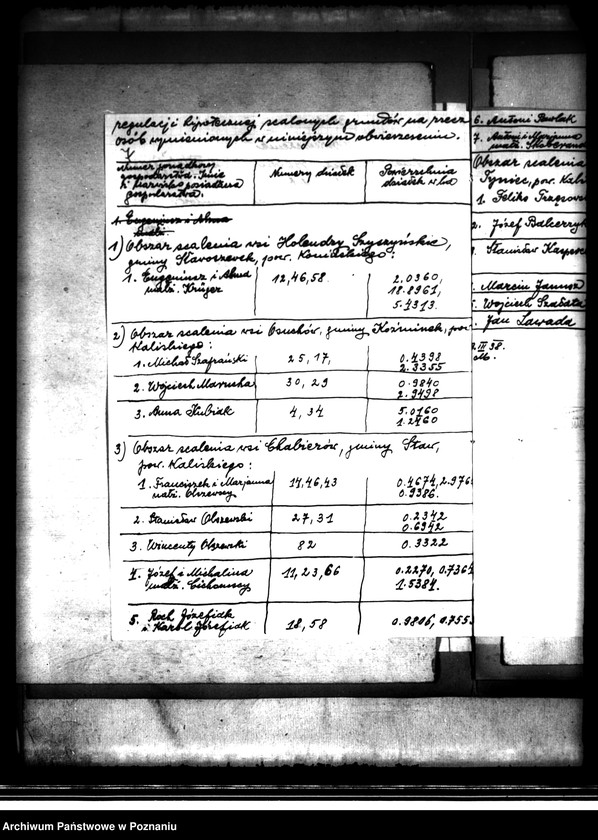 regulacji hipotecznej scalonych gruntów na rzecz
osób wymienionych w niniejszym obwieszczeniu.
Numer porządkowy
gospodarstwa. Imię
i nazwisko posiadacza
gospodarstwa.
Numery działek
Powierzchnia
działek w ha
1. Eugeniusz i Alma
1) Obszar scalenia wsi Holendry Szyszyńskie,
gminy Sławoszewek, pow. Konińskiego:
1. Eugeniusz i Alma
małż. Krüger
12, 46, 58.
2.0360,
18.8961,
5.4313.
2) Obszar scalenia wsi Osuchów, gminy Koźminek, pow.
Kaliskiego:
1. Michał Szafrański
25, 17,
0.4398
2.3355
2. Wojciech Marucha
30, 29
0.9840
2.9498
3. Anna Kubiak
4, 34
5.0160
1.2460
3) Obszar scalenia wsi Chabierów, gminy Staw,
pow. Kaliskiego:
1. Franciszek i Marjanna
małż. Olszewscy
14, 46, 43
0.4674, 2.976
0.9386.
2. Stanisław Olszewski
27, 31
0.2342
0.6942
3. Wincenty Olszewski
82
0.3322
4. Józef i Michalina
małż. Cichomscy
11, 23, 66
0.2270, 0.7364
1.5384.
5. Roch Józefiak
i Karol Józefiak
18, 58
0.9806, 0.755
6. Antoni Pawlak
7. Antoni i Marjanna
małż.
Obszar scalenia
Tyniec, pow. Kali
1. Feliks
2. Józef Balcerzyk
Stanisław
Marcin Janusz
Wojciech Szałata
Jan Zawada
III 38.
Archiwum Państwowe w Poznaniu